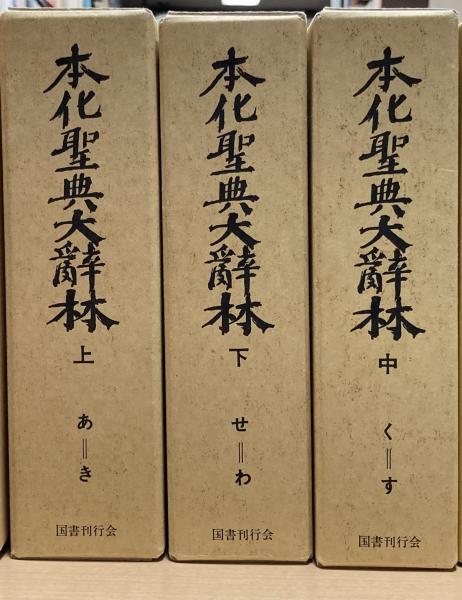 本化聖典大辭林
上
あ＝き
国書刊行会
本化聖典大辭林
下
せ＝わ
国書刊行会
本化聖典大辭林
中
く＝す
国書刊行会